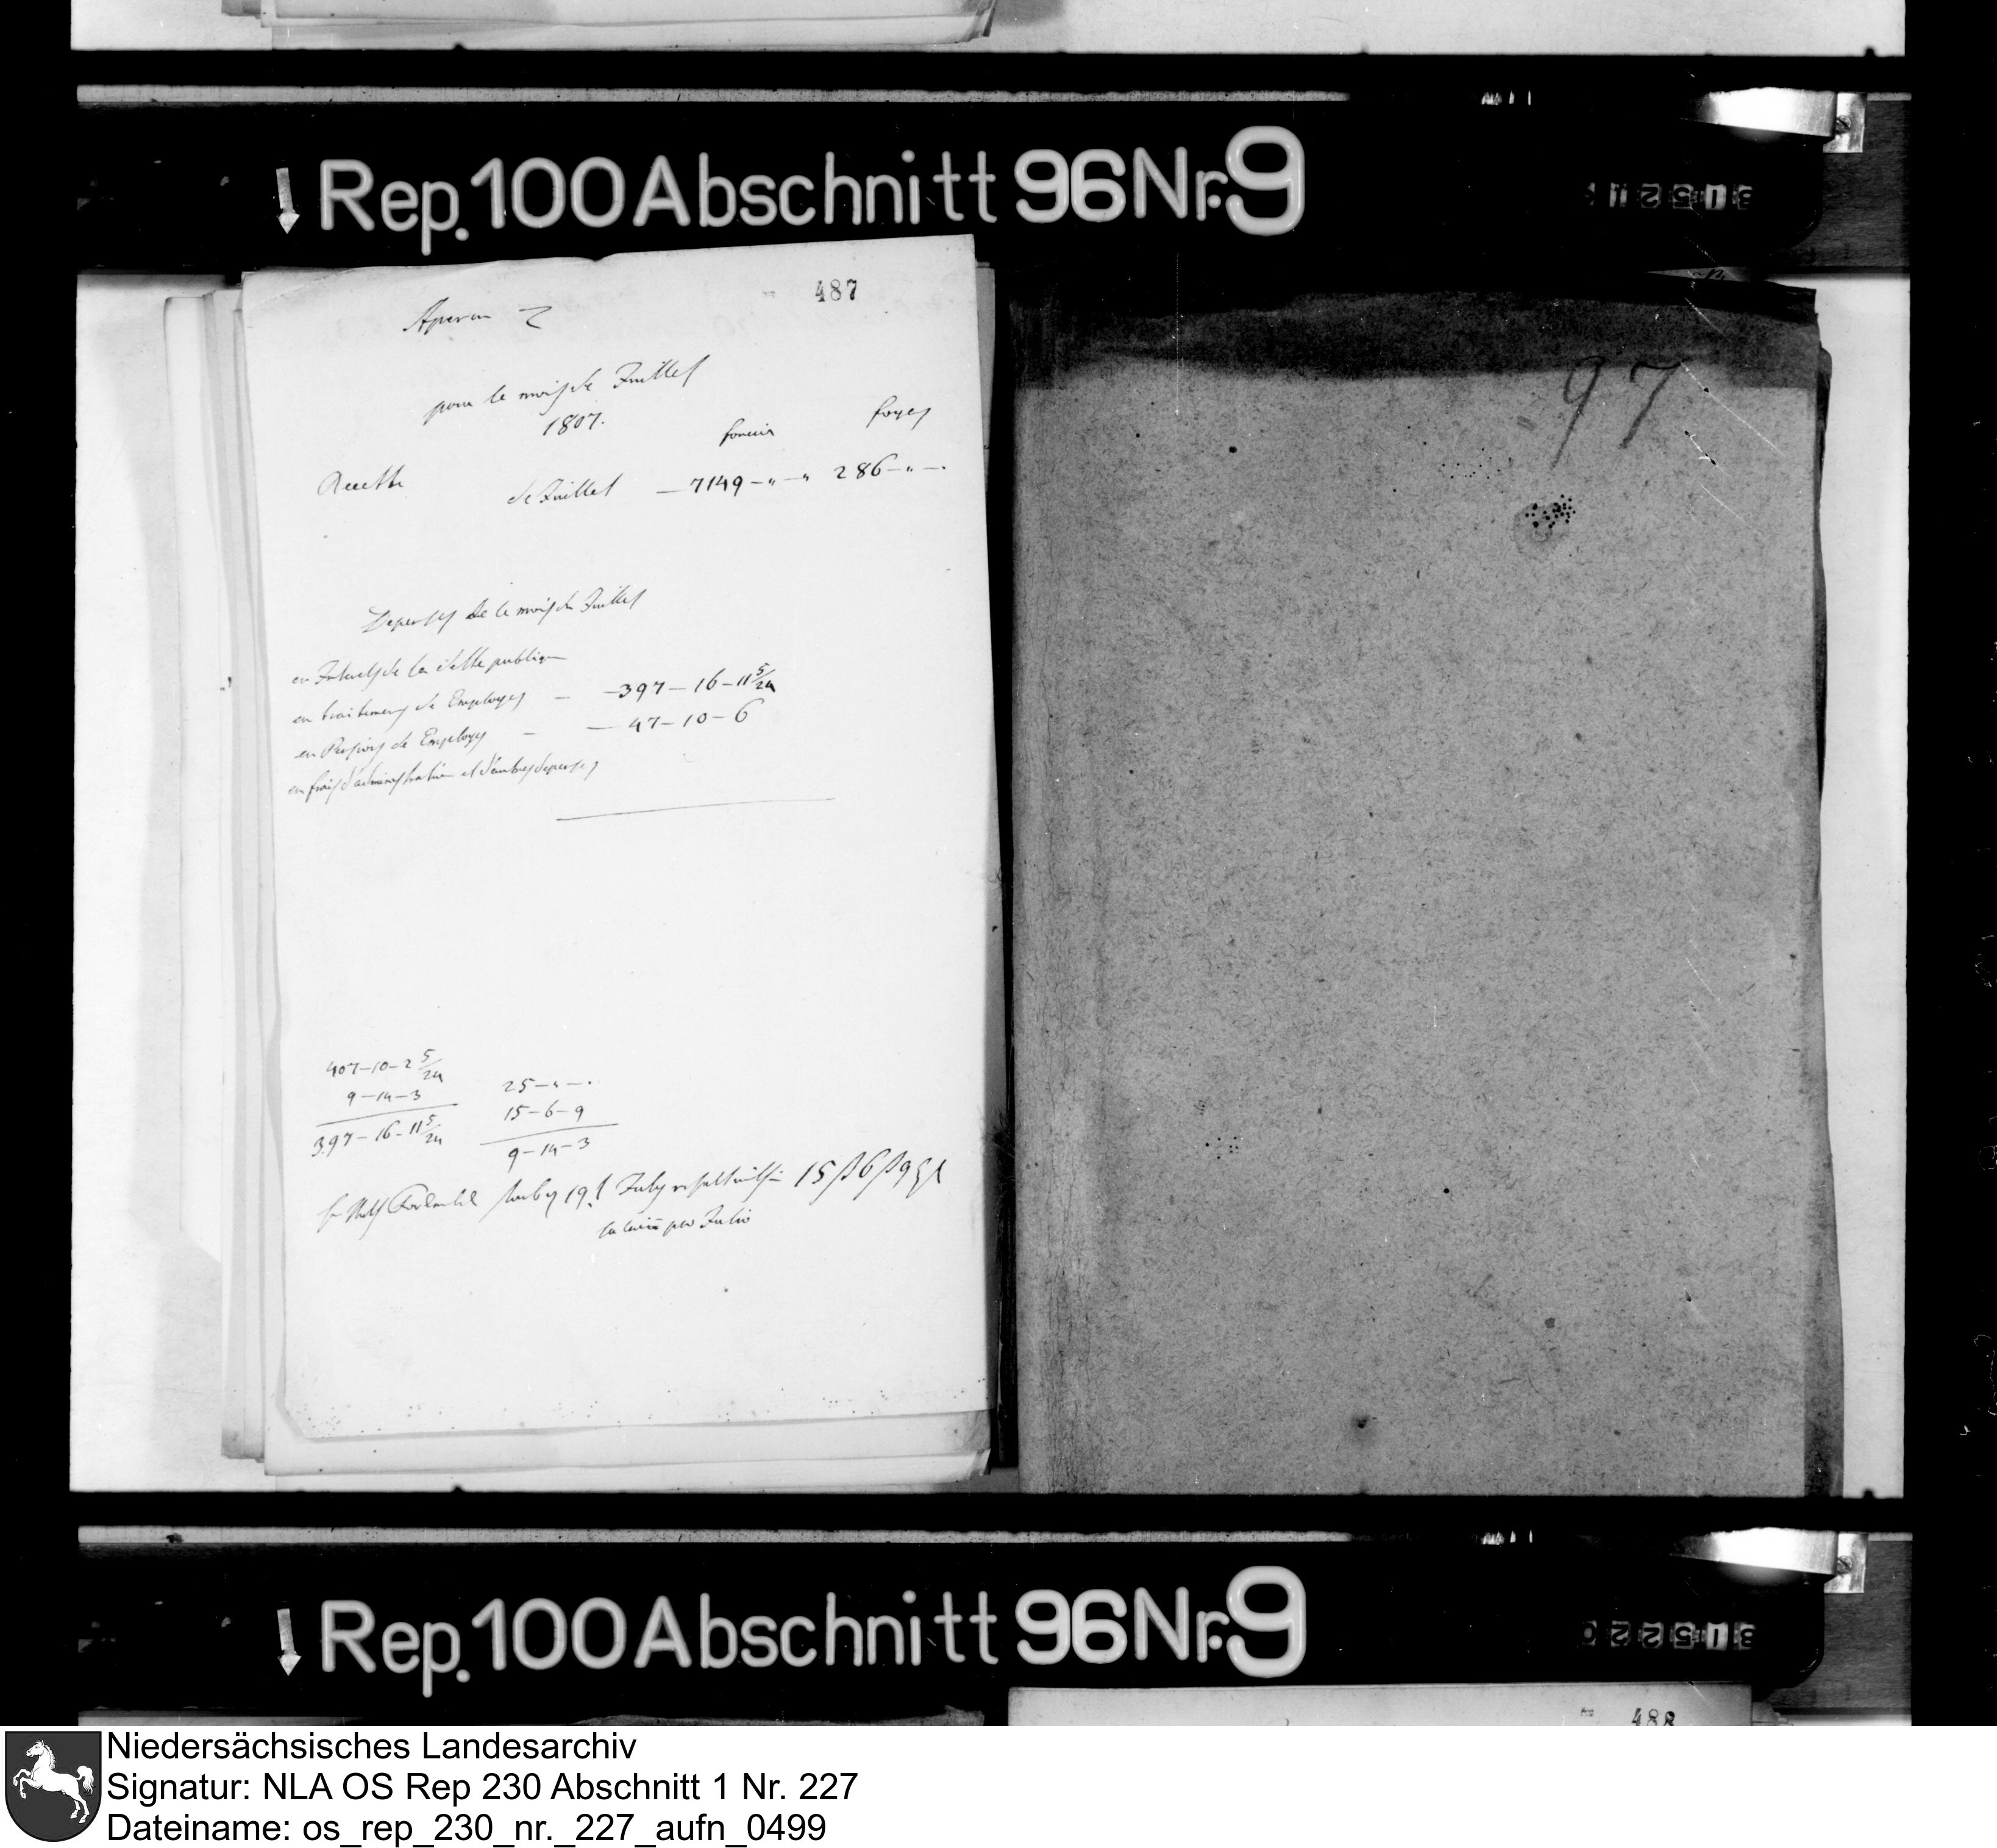 Rep. 100 Abschnitt 96 Nr. 9
487
Apercu
pour le mois de Juillet
1807.
foncier foyes
Recette de Juillet — 7149 — " — " 286 — " — .
Depenses de le mois de Juillet
en Interets de la dette publique
en traitemens de Employes — — 397 — 16 — 11 5/24
en Pensions de Employes — — 47 — 10 — 6
en frais d'administration et d'autres depenses
407 — 10 — 2 5/24
9 — 14 — 3
397 — 16 — 11 5/24
25 — " — .
15 — 6 — 9
9 — 14 — 3
19 July 15 6 9
pro Julio
97
Rep. 100 Abschnitt 96 Nr. 9
488
Niedersächsisches Landesarchiv
Signatur: NLA OS Rep 230 Abschnitt 1 Nr. 227
Dateiname: os_rep_230_nr._227_aufn_0499